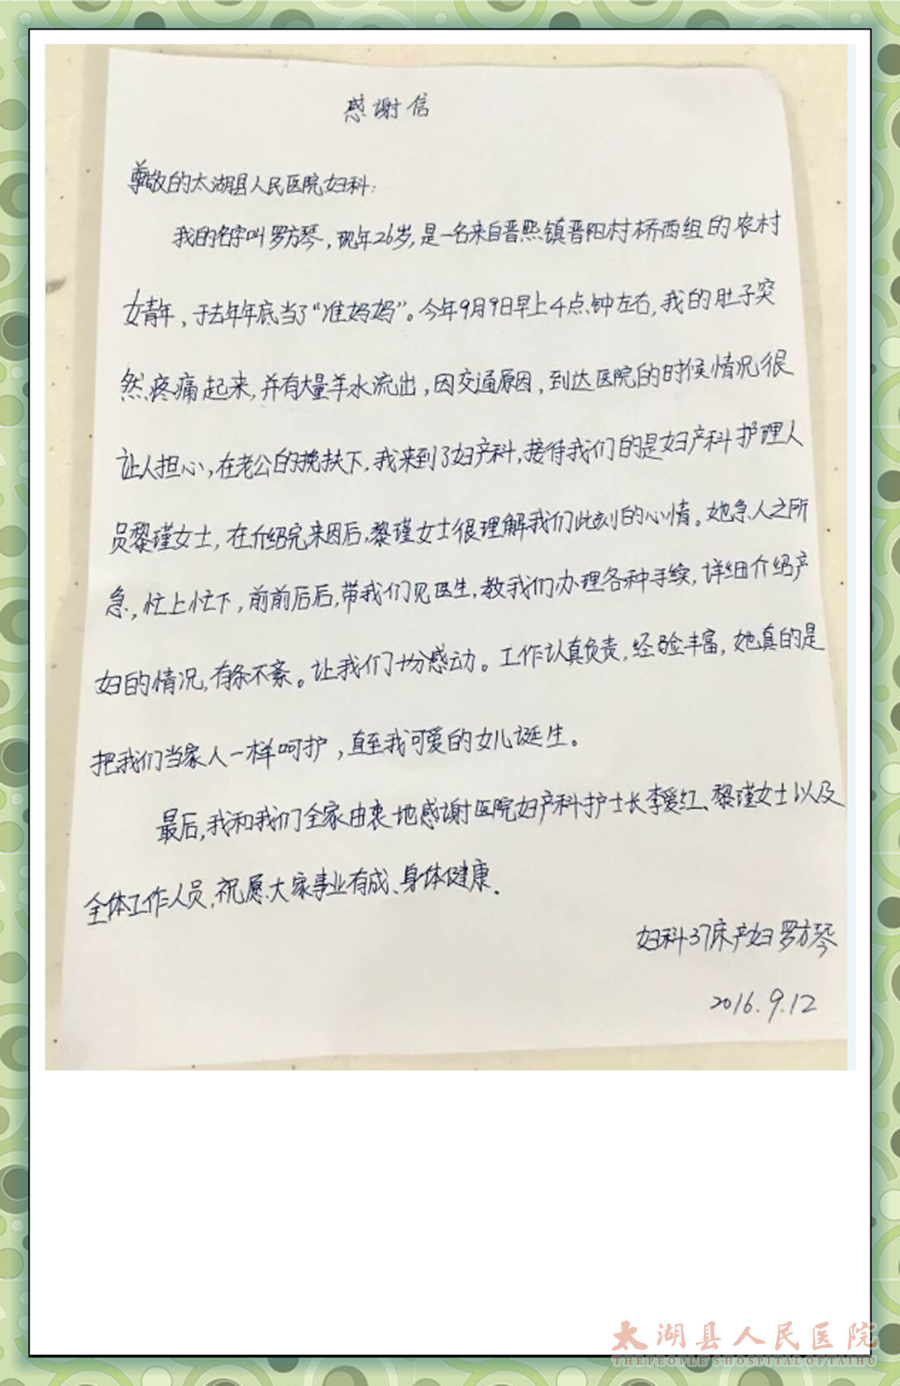 感谢信
尊敬的太湖县人民医院妇科:
我的名字叫罗方琴，现年26岁，是一名来自晋熙镇晋阳村桥西组的农村
女青年，于去年年底当了“准妈妈”。今年9月9日早上4点钟左右，我的肚子突
然疼痛起来，并有大量羊水流出，因交通原因，到达医院的时候情况很
让人担心，在老公的搀扶下，我来到了妇产科，接待我们的是妇产科护理人
员黎瑾女士，在介绍完来因后，黎瑾女士很理解我们此刻的心情。她急人之所
急，忙上忙下，前前后后，带我们见医生，教我们办理各种手续，详细介绍产
妇的情况，有条不紊。让我们十分感动。工作认真负责，经验丰富，她真的是
把我们当家人一样呵护，直至我可爱的女儿诞生。
最后，我和我们全家由衷地感谢医院妇产科护士长李爱红、黎瑾女士以及
全体工作人员，祝愿大家事业有成、身体健康.
妇科37床产妇罗方琴
2016.9.12
太湖县人民医院
THEPEOPLE'SHOSPITALOFTAIHU